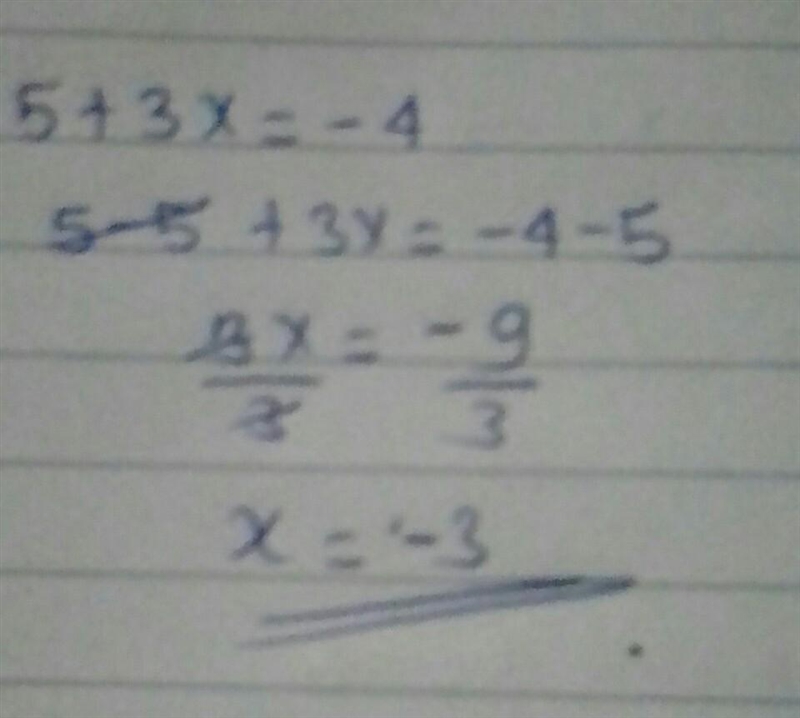 5 + 3x = -4
5 - 5 + 3x = -4 - 5
3x/3 = -9/3
x = -3